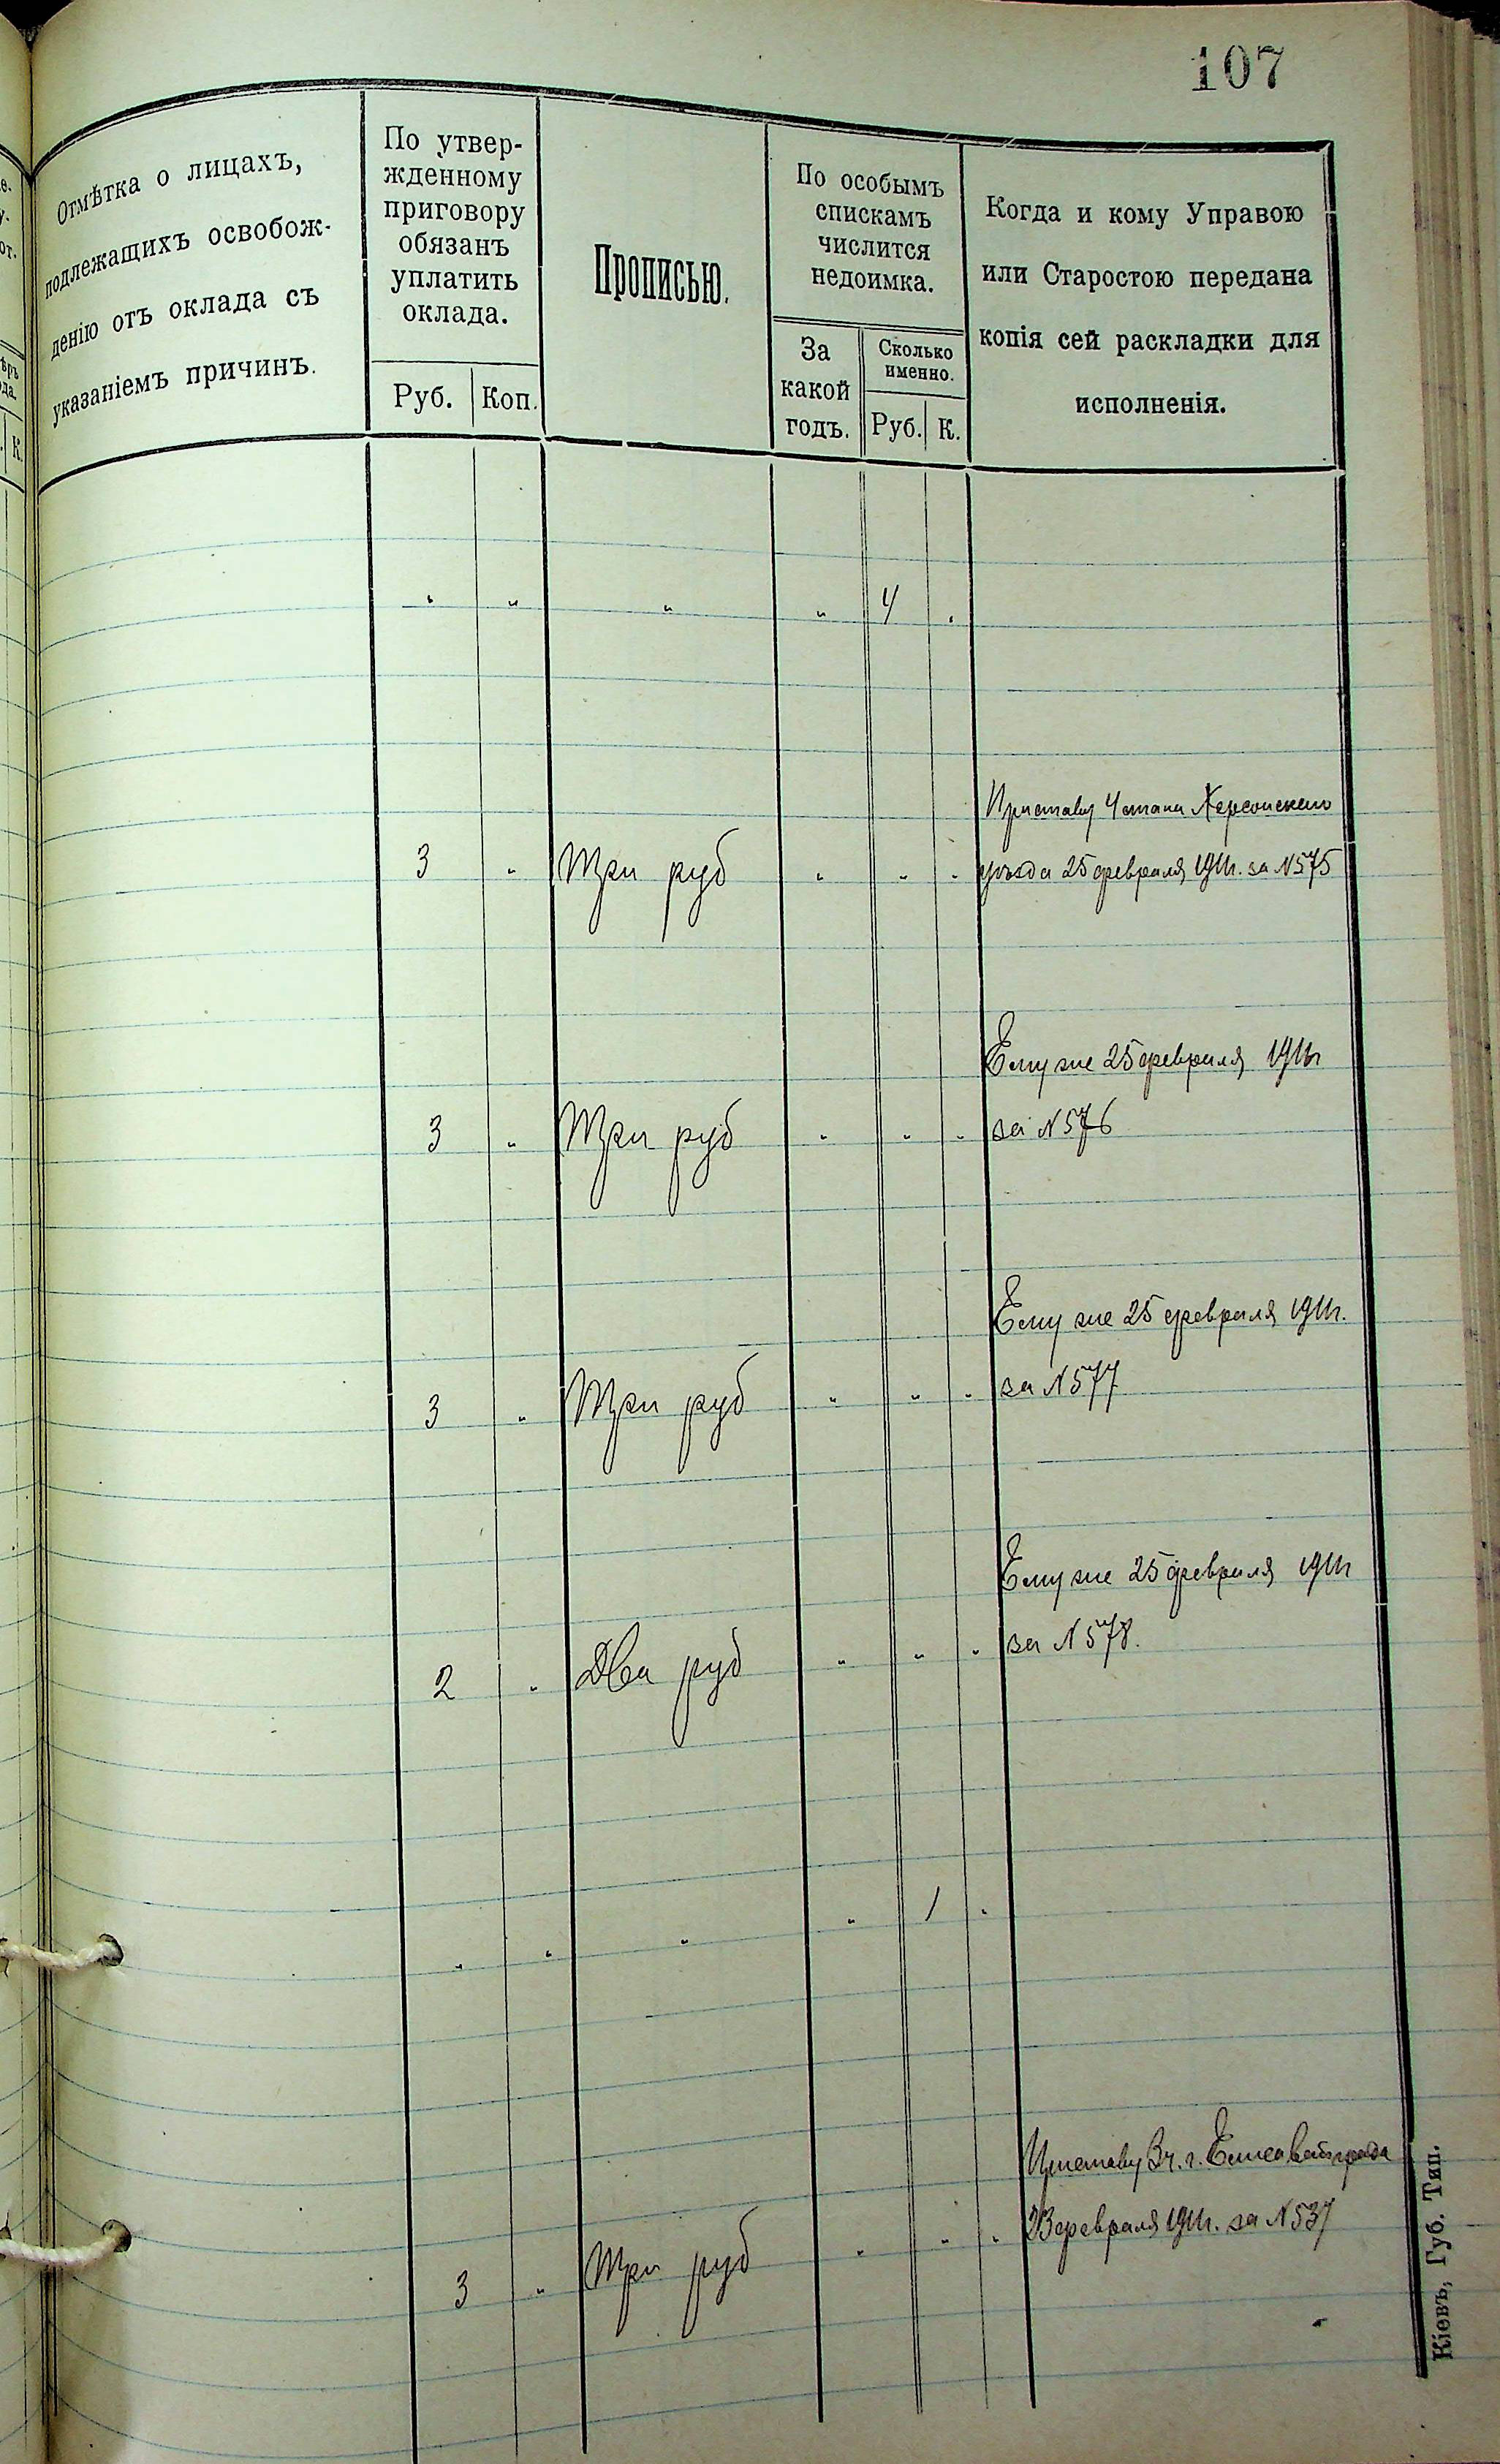 107
Отмѣтка о лицахъ,
подлежащихъ освобож-
денію отъ оклада съ
указаніемъ причинъ.
По утвер-
жденному
приговору
обязанъ
уплатить
оклада.
Руб. Коп.
Прописью.
По особымъ
спискамъ
числится
недоимка.
За
какой
годъ.
Сколько
именно.
Руб. К.
Когда и кому Управою
или Старостою передана
копія сей раскладки для
исполненія.
" " " " 4 "
Приставу 4 стана Херсонскаго
3 " Три руб " " " уѣзда 25 февраля 1911г. за №575
Ему же 25 февраля 1911г
3 " Три руб " " " за №576
Ему же 25 февраля 1911г.
3 " Три руб " " " за №577
Ему же 25 февраля 1911г
2 " Два руб " " " за №578.
" " " " 1 "
Приставу 3 ч. г. Елисаветграда
3 " Три руб " " " 23 февраля 1911г. за №537
Кіевъ, Губ. Тип.